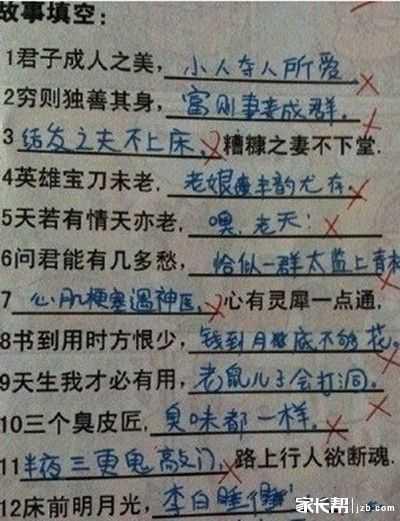 故事填空:
1君子成人之美,小人夺人所爱。
2穷则独善其身,富则妻妾成群。
3结发之夫不上床,糟糠之妻不下堂.
4英雄宝刀未老,老娘丰韵尤存。
5天若有情天亦老,噢,老天!
6问君能有几多愁,恰似一群太监上青楼
7心肌梗塞遇神医,心有灵犀一点通.
8书到用时方恨少,钱到月底不够花。
9天生我才必有用,老鼠儿子会打洞。
10三个臭皮匠,臭味都一样。
11半夜三更鬼敲门,路上行人欲断魂.
12床前明月光,李白睡
家长帮 jzb.com